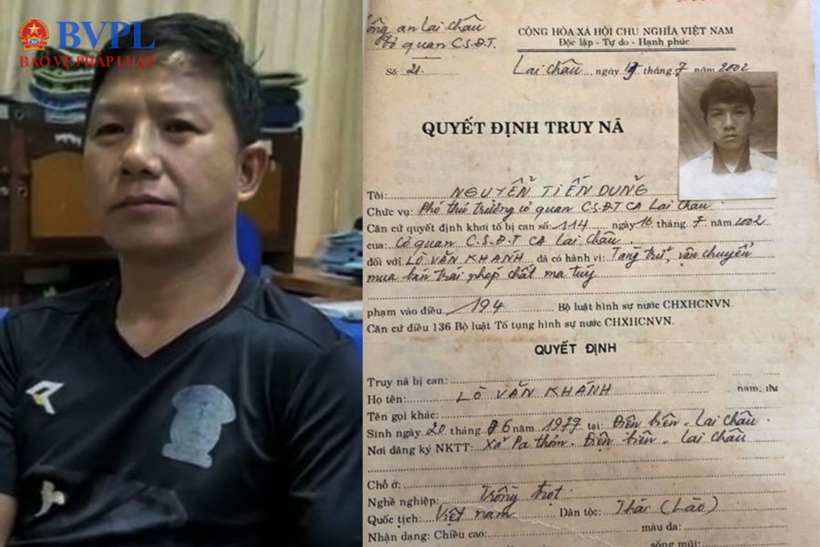 BVPL
BẢO VỆ PHÁP LUẬT
Công an Lai Châu
Cơ quan C.S.Đ.T.
Số: 21.
CỘNG HÒA XÃ HỘI CHU NGHĨA VIỆT NAM
Độc lập - Tự do - Hạnh phúc
Lai Châu, ngày 19 tháng 7 năm 2002
QUYẾT ĐỊNH TRUY NÃ
Tôi: NGUYỄN TIẾN DŨNG
Chức vụ: Phó thủ trưởng cơ quan C.S.Đ.T CA Lai Châu.
Căn cứ quyết định khởi tố bị can số: 114 ngày 16 tháng 7 năm 2002
của: Cơ quan C.S.Đ.T CA Lai Châu.
đối với LÒ VĂN KHANH đã có hành vi: Tàng trữ, vận chuyển
mua bán trái phép chất ma túy
phạm vào điều 194 Bộ luật hình sự nước CHXHCNVN.
Căn cứ điều 136 Bộ luật Tố tụng hình sự nước CHXHCNVN.
QUYẾT ĐỊNH
Truy nã bị can:
Họ tên: LÒ VĂN KHÁNH nam,
Tên gọi khác:
Sinh ngày 20 tháng 6 năm 1977 tại: Điện biên - Lai Châu.
Nơi đăng ký NKTT: Xã Pa thơm - Điện biên - Lai Châu
Chỗ ở:
Nghề nghiệp: Trồng trọt
Quốc tịch: Việt nam Dân tộc: Thái (Lào)
Nhận dạng: Chiều cao: màu da:
sống mũi: